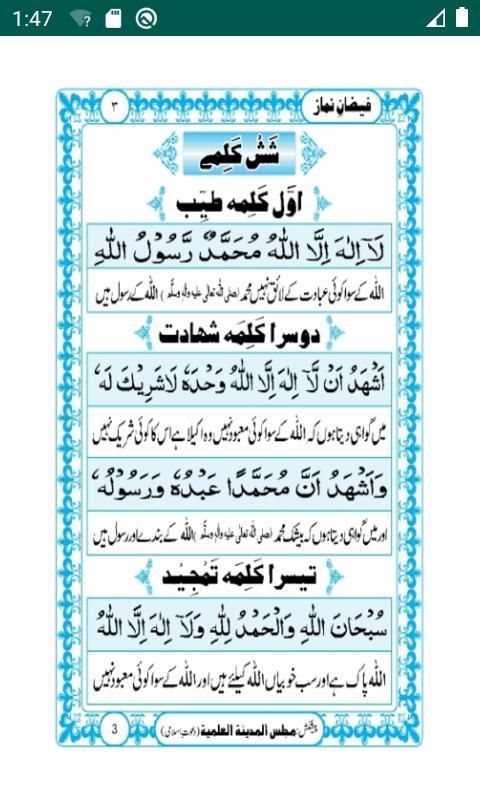 1:47
فیضانِ نماز ۳
شَشْ کَلِمے
اوّل کَلِمہ طیِّب
لَاۤ اِلٰهَ اِلَّا اللّٰهُ مُحَمَّدٌ رَّسُوْلُ اللّٰهِ
اللہ کے سوا کوئی عبادت کے لائق نہیں محمد (صلی اللہ تعالٰی علیہ واٰلہٖ وسلَّم) اللہ کے رسول ہیں
دوسرا کَلِمَہ شھادت
اَشْهَدُ اَنْ لَّاۤ اِلٰهَ اِلَّا اللّٰهُ وَحْدَهٗ لَاشَرِيْكَ لَهٗ
میں گواہی دیتا ہوں کہ اللہ کے سوا کوئی معبود نہیں وہ اکیلا ہے اس کا کوئی شریک نہیں
وَاَشْهَدُ اَنَّ مُحَمَّدًا عَبْدُهٗ وَرَسُوْلُهٗ
اور میں گواہی دیتا ہوں کہ بیشک محمد (صلی اللہ تعالٰی علیہ واٰلہٖ وسلَّم) اللہ کے بندے اور رسول ہیں
تیسرا کَلِمَہ تَمْجِیْد
سُبْحَانَ اللّٰهِ وَالْحَمْدُ لِلّٰهِ وَلَاۤ اِلٰهَ اِلَّا اللّٰهُ
اللہ پاک ہے اور سب خوبیاں اللہ کیلئے ہیں اور اللہ کے سوا کوئی معبود نہیں
پیشکش: مجلس المدینة العلمیة (دعوتِ اسلامی) 3